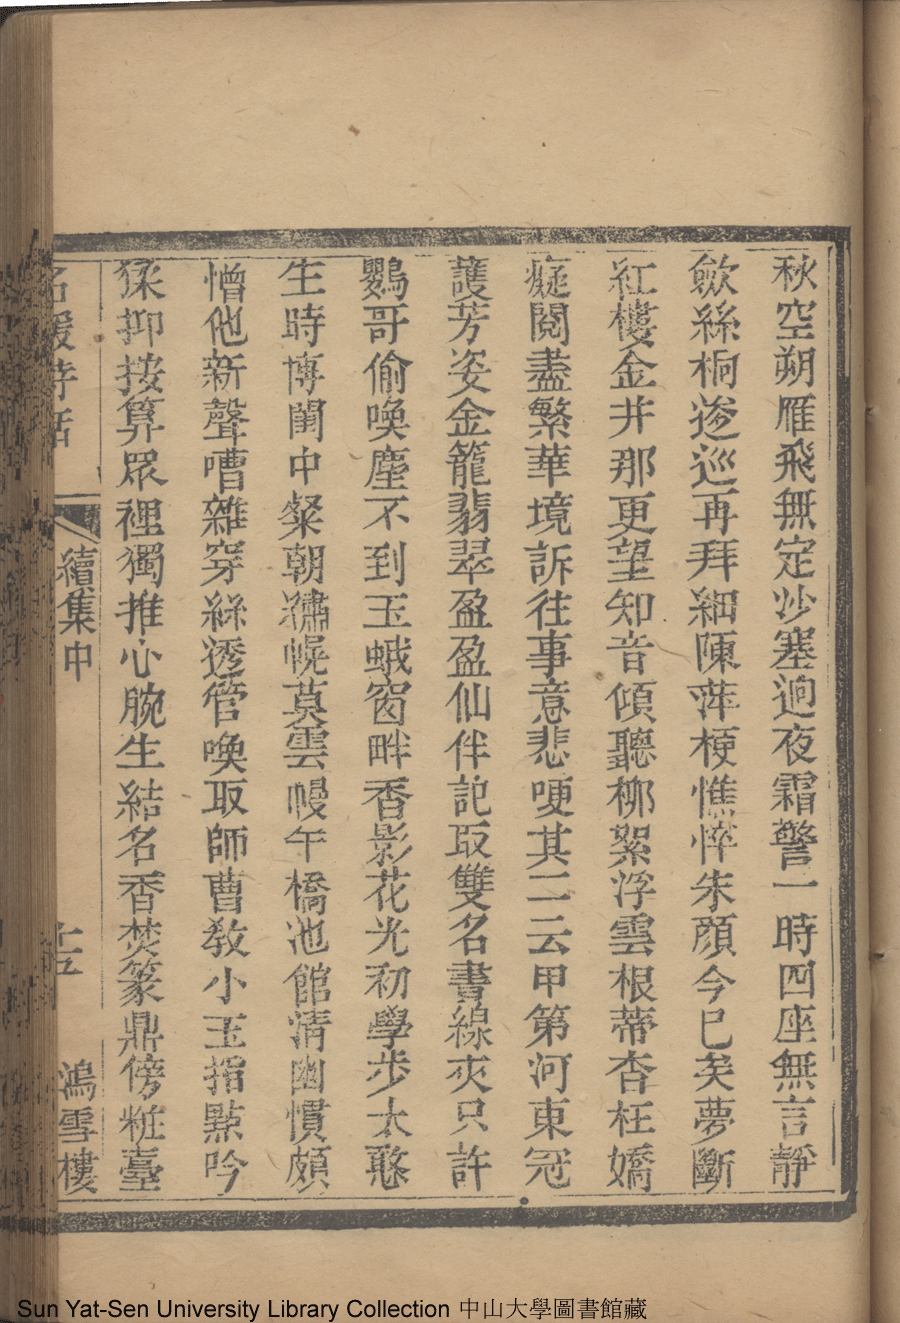 秋空朔雁飛無定沙塞逈夜霜警一時四座無言靜
歛絲桐逡巡再拜細陳萍梗憔悴朱顏今已矣夢斷
紅樓金井那更望知音傾聽柳絮浮雲根蒂杳枉嬌
癡閱盡繁華境訴往事意悲哽其二云甲第河東冠
護芳姿金籠翡翠盈盈仙伴記取雙名書線夾只許
鸚哥偷喚塵不到玉蛾窗畔香影花光初學步太憨
生時博閨中粲朝繡幌莫雲幔午橋池館淸幽慣頗
憎他新聲嘈雜穿絲透管喚取師曹敎小玉指點吟
猱抑按算眾裡獨推心腕生結名香焚篆鼎傍粧臺
名媛詩話 續集中 十五 鴻雪樓
Sun Yat-Sen University Library Collection 中山大學圖書館藏